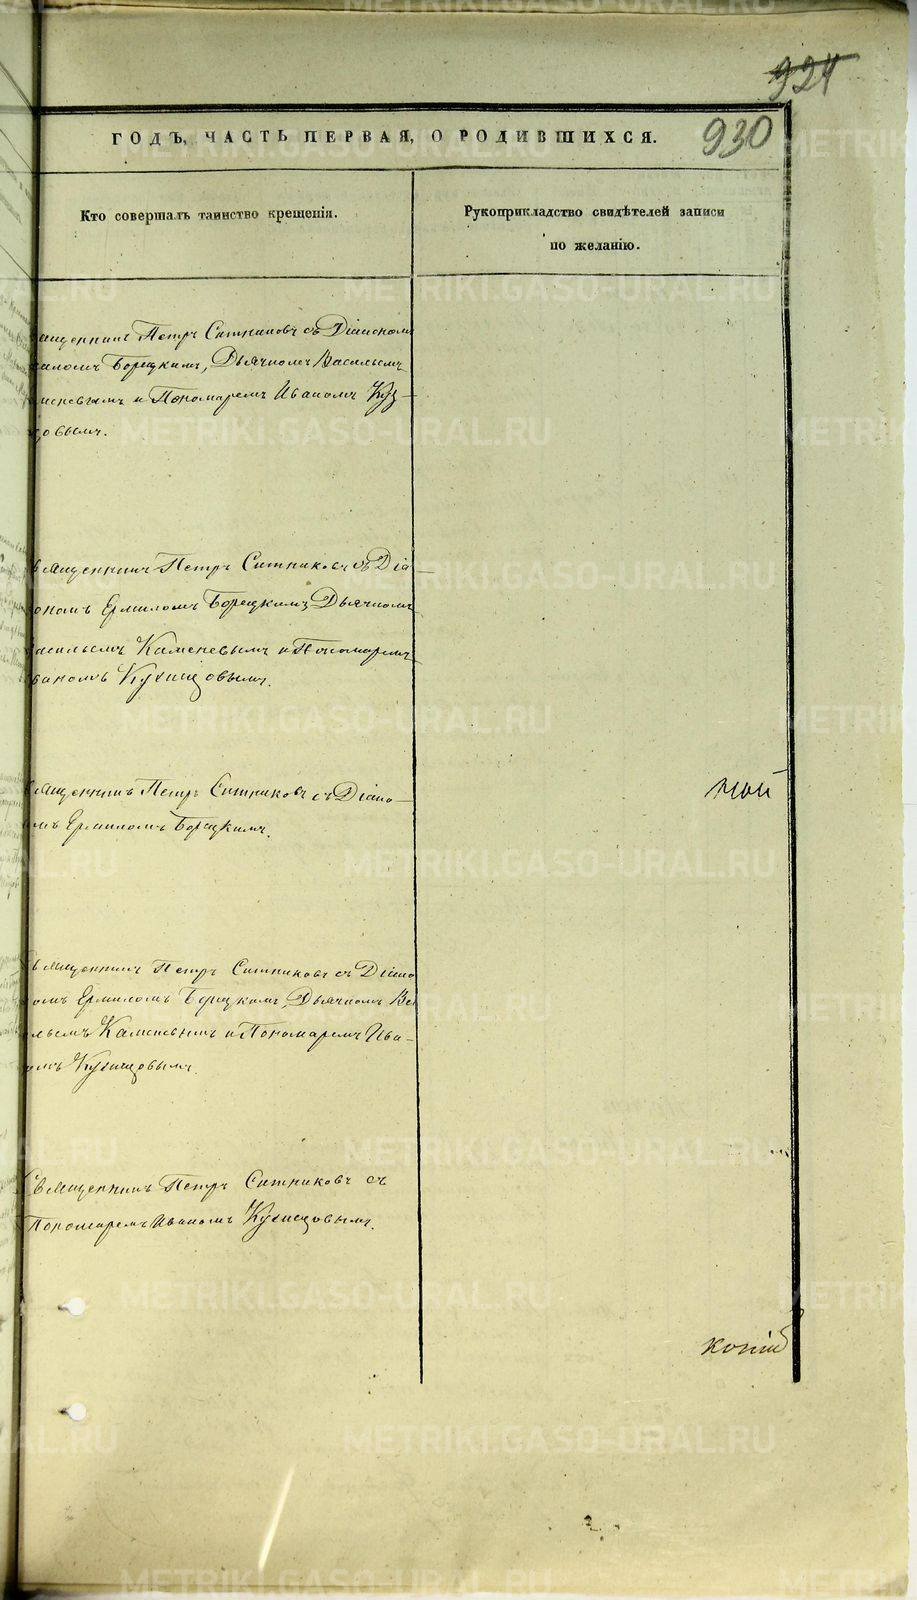 924
930
ГОДЪ, ЧАСТЬ ПЕРВАЯ, О РОДИВШИХСЯ.
Кто совершалъ таинство крещенія.
Рукоприкладство свидѣтелей записи
по желанію.
ященникъ Петръ Ситниковъ съ Діакономъ
миломъ Борецкимъ, Дьячкомъ Васильемъ
меневымъ и Пономаремъ Иваномъ Куз-
цовымъ.
Священникъ Петръ Ситниковъ съ Діа-
кономъ Ермиломъ Борецкимъ, Дьячкомъ
Васильемъ Каменевымъ и Пономаремъ
Иваномъ Кузнецовымъ.
Священникъ Петръ Ситниковъ съ Діако-
мъ Ермиломъ Борецкимъ.
ной
Священникъ Петръ Ситниковъ съ Діако
омъ Ермиломъ Борецкимъ, Дьячкомъ Ва
льемъ Каменевымъ и Пономаремъ Ива-
омъ Кузнецовымъ.
Священникъ Петръ Ситниковъ съ
Пономаремъ Иваномъ Кузнецовымъ.
копіи
METRIKI.GASO-URAL.RU